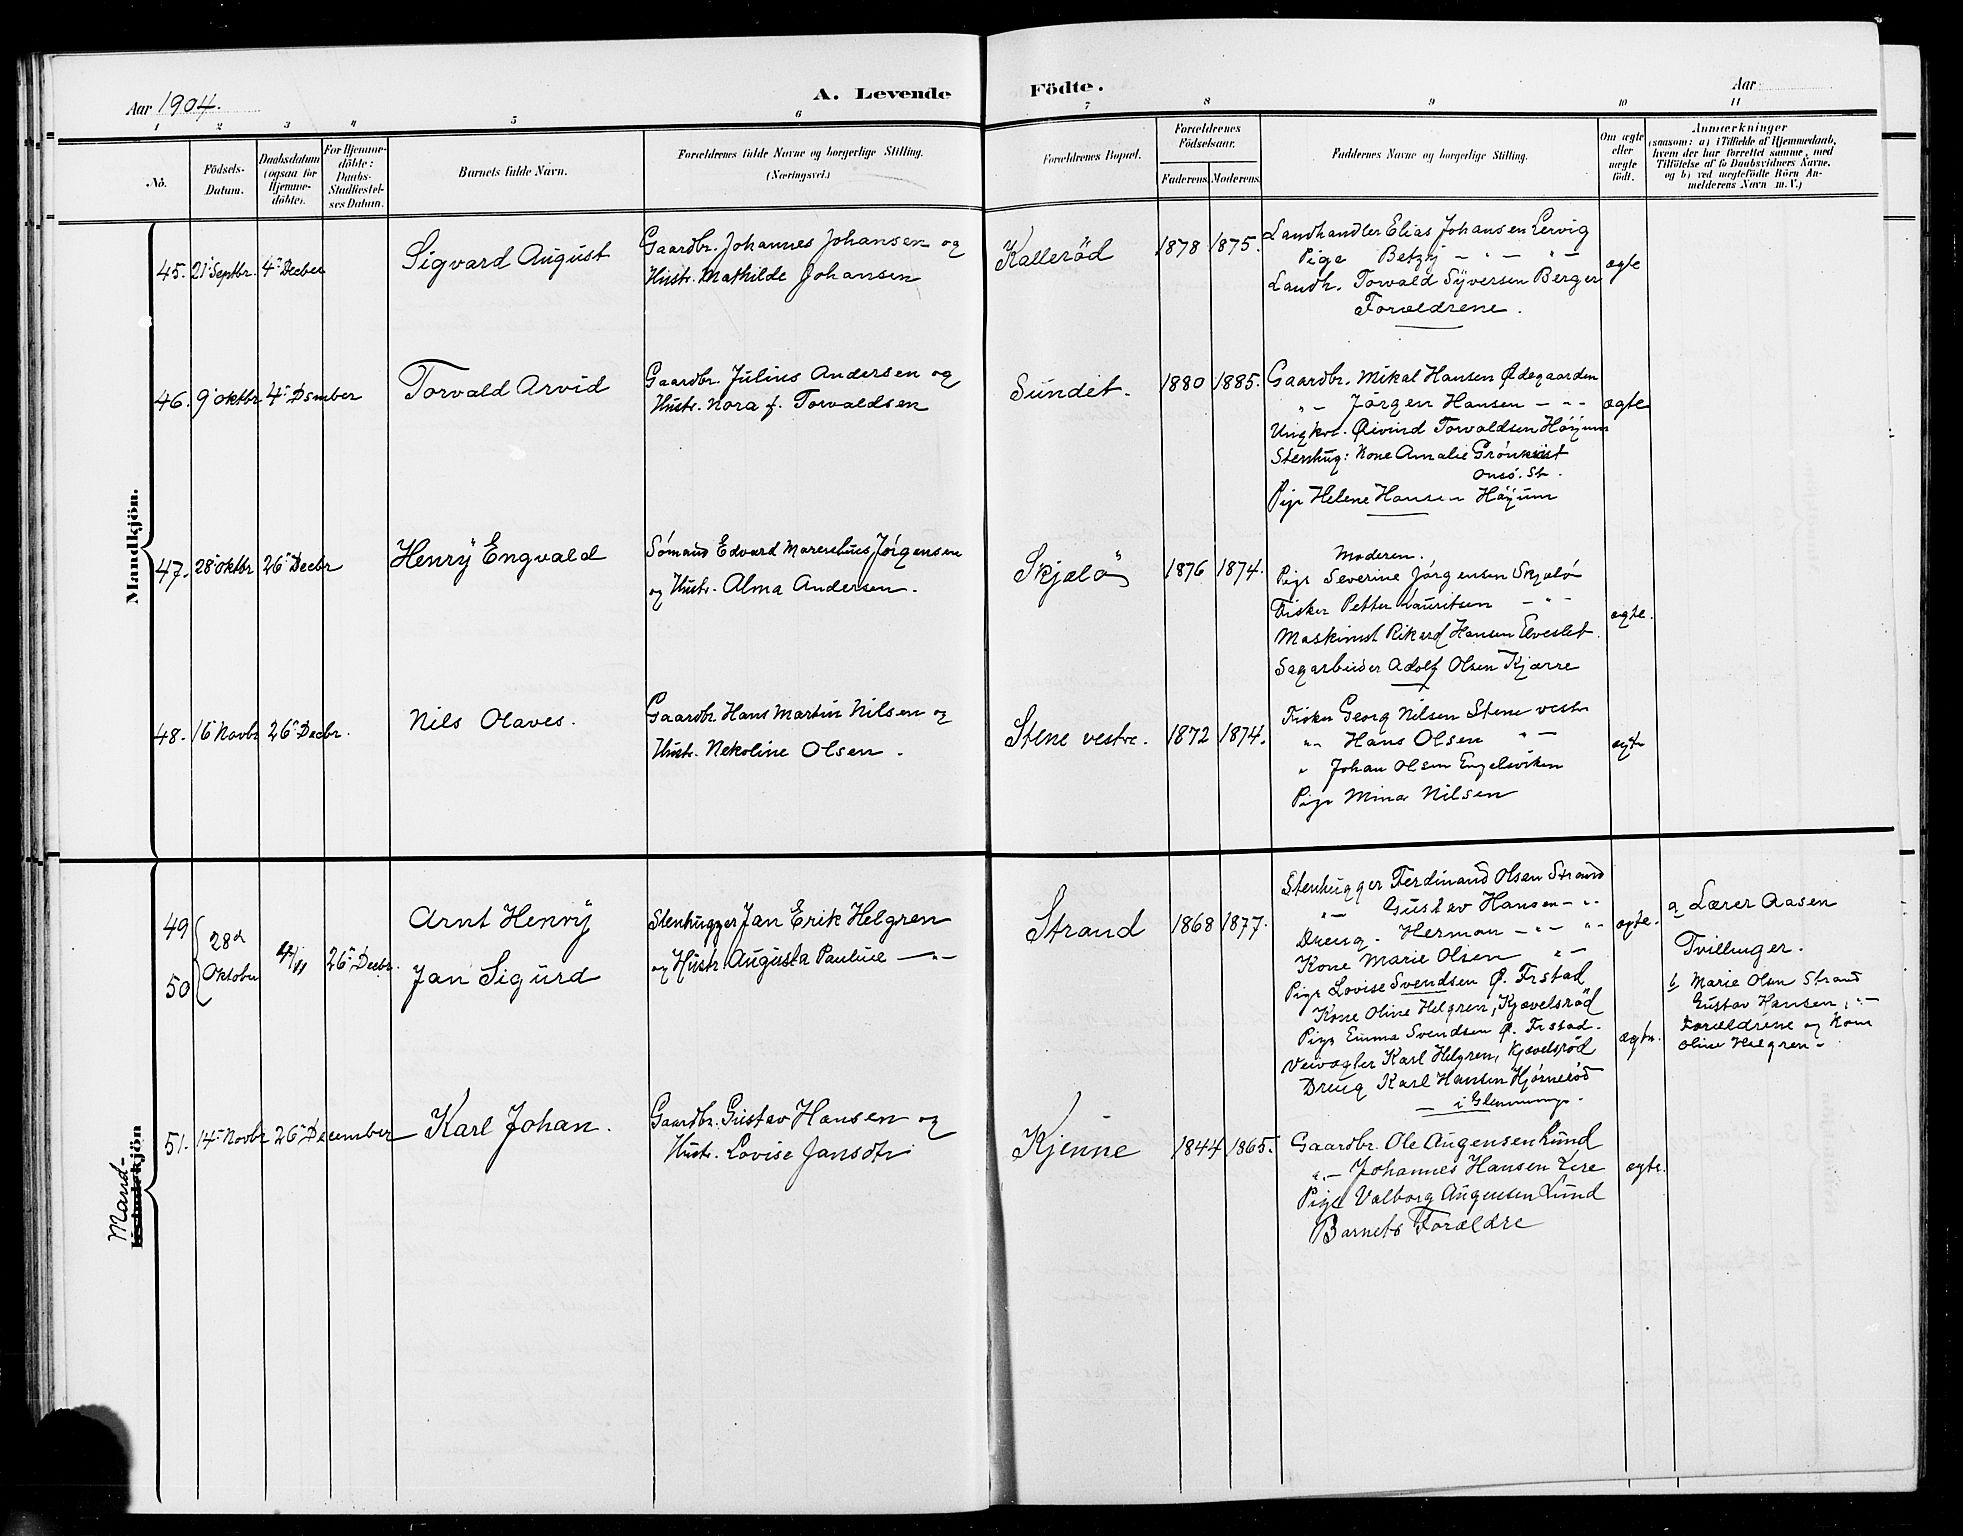 Aar 1904.
A. Levende Födte.
Aar
1 2 3 4 5 6 7 8 9 10 11
No.
Födsels-
Datum.
Daabsdatum
(ogsaa for
Hjemme-
döbte).
For Hjemme-
döbte:
Daabs-
Stadfæstel-
ses Datum.
Barnets fulde Navn.
Forældrenes fulde Navne og borgerlige Stilling.
(Næringsvei.)
Forældrenes Bopæl.
Forældrenes
Födselsaar.
Faderens. Moderens.
Faddernes Navne og borgerlige Stilling.
Om ægte
eller
uægte
födt.
Anmærkninger
(saasom: a) i Tilfælde af Hjemmedaab,
hvem der har forrettet samme, med
Tilføielse af to Daabsvidners Navne,
og b) ved uægtefödte Börn An-
melderens Navn m. V.)
Mandkjön.
45. 21' Septbr. 4' Decber
Sigvard August
Gaardbr. Johannes Johansen og
Hustr. Mathilde Johansen
Kalleröd
1878 1875.
Landhandler Elias Johansen Lervig
Pige Betzy — " — " —
Landh. Torvald Syversen Berger
Forældrene.
ægte
46. 9' oktbr 4' Dsmber
Torvald Arvid
Gaardbr. Julius Andersen og
Hustr. Nora f. Torvaldsen
Sundet.
1880 1885.
Gaardbr. Mikal Hansen Ødegaarden
" — Jörgen Hansen — " —
Ungkr. Øivind Torvaldsen Höyum
Stenhug: Kone Amalie Grönkvist
Onsö. St.
Pige Helene Hansen Höyum
ægte
47. 28' oktbr 26' Decbr
Henry Engvald
Sömand Edvard Jörgensen
og Hustr. Alma Andersen.
Skjælö
1876 1874.
Moderen.
Pige Severine Jörgensen Skjælö
Fisker Petter Lauritsen — " —
Maskinist Rikard Hansen Elveslet.
Sagarbeider Adolf Olsen Kjærre
ægte.
48. 16 Novbr 26' Decbr.
Nils Olaves.
Gaardbr Hans Martin Nilsen og
Hustr. Nekoline Olsen.
Stene vestre.
1872 1874.
Fisker Georg Nilsen Stene vestr
" Hans Olsen " —
" Johan Olsen Engelsviken
Pige Mina Nilsen
ægte
Mand-
Kvindekjön
49
50
28d
Oktober
4/11
26' Decbr.
Arnt Henry
Jan Sigurd
Stenhugger Jan Erik Helgren
og Hustr. Augusta Pauline — " —
Strand
1868 1877.
Stenhugger Ferdinand Olsen Strand
" — Gustav Hansen — " —
Dreng. Herman — " — " —
Kone Marie Olsen " —
Pige Lovise Svendsen Ø. Frstad
Kone Oline Helgren, Kjævelsröd
Pige Emma Svendsen Ø. Frstad.
Veivogter Karl Helgren, Kjævelsröd
Dreng Karl Hansen Hjørneröd
— i Glemminge.
ægte.
ægte.
a Lærer Aasen
Tvillinger.
b Marie Olsen Strand
Gustav Hansen, " —
Forældrene og Kone
Oline Helgren —
51. 14' Novbr 26' December
Karl Johan.
Gaardbr. Gustav Hansen og
Hustr. Lovise Jansdtr
Kjenne
1844 1865.
Gaardbr. Ole Augensen Lund
" — Johannes Hansen Lere
Pige Valborg Augensen Lund
Barnets Forældre
ægte.